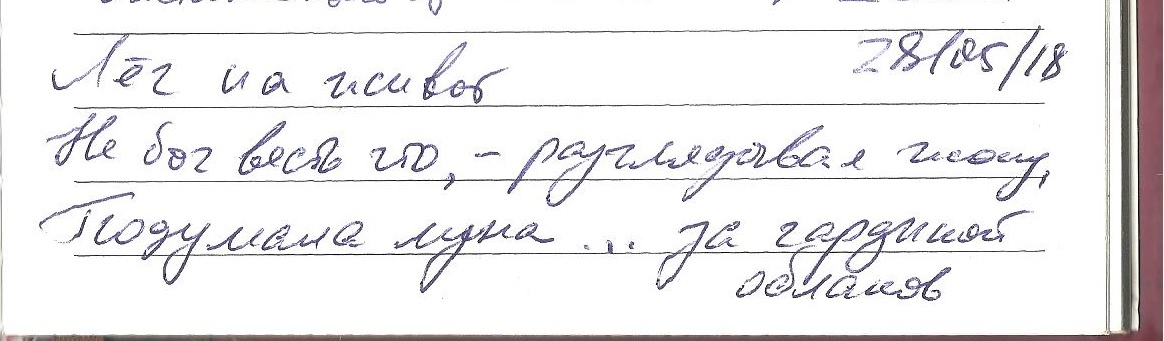 Лёг на живот 28/05/18
Не бог весть что, – разглядывая жопу,
Подумала луна ... за гардиной
облаков